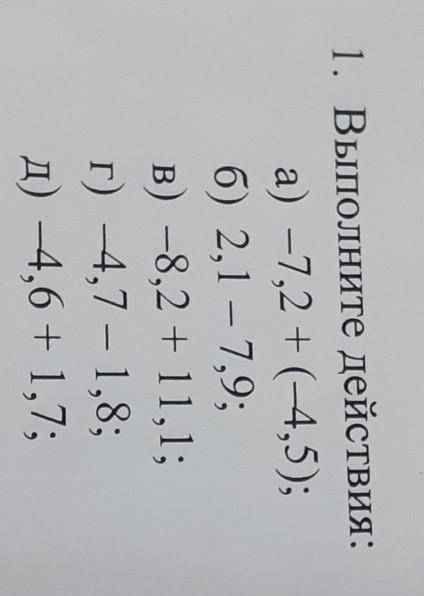 1. Выполните действия:
а) –7,2 + (–4,5);
б) 2,1 – 7,9;
в) –8,2 + 11,1;
г) –4,7 – 1,8;
д) –4,6 + 1,7;